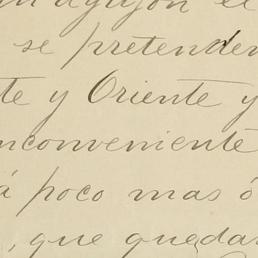 el
se pretenden
te y Oriente y
nconveniente
á poco mas ó
, que quedar